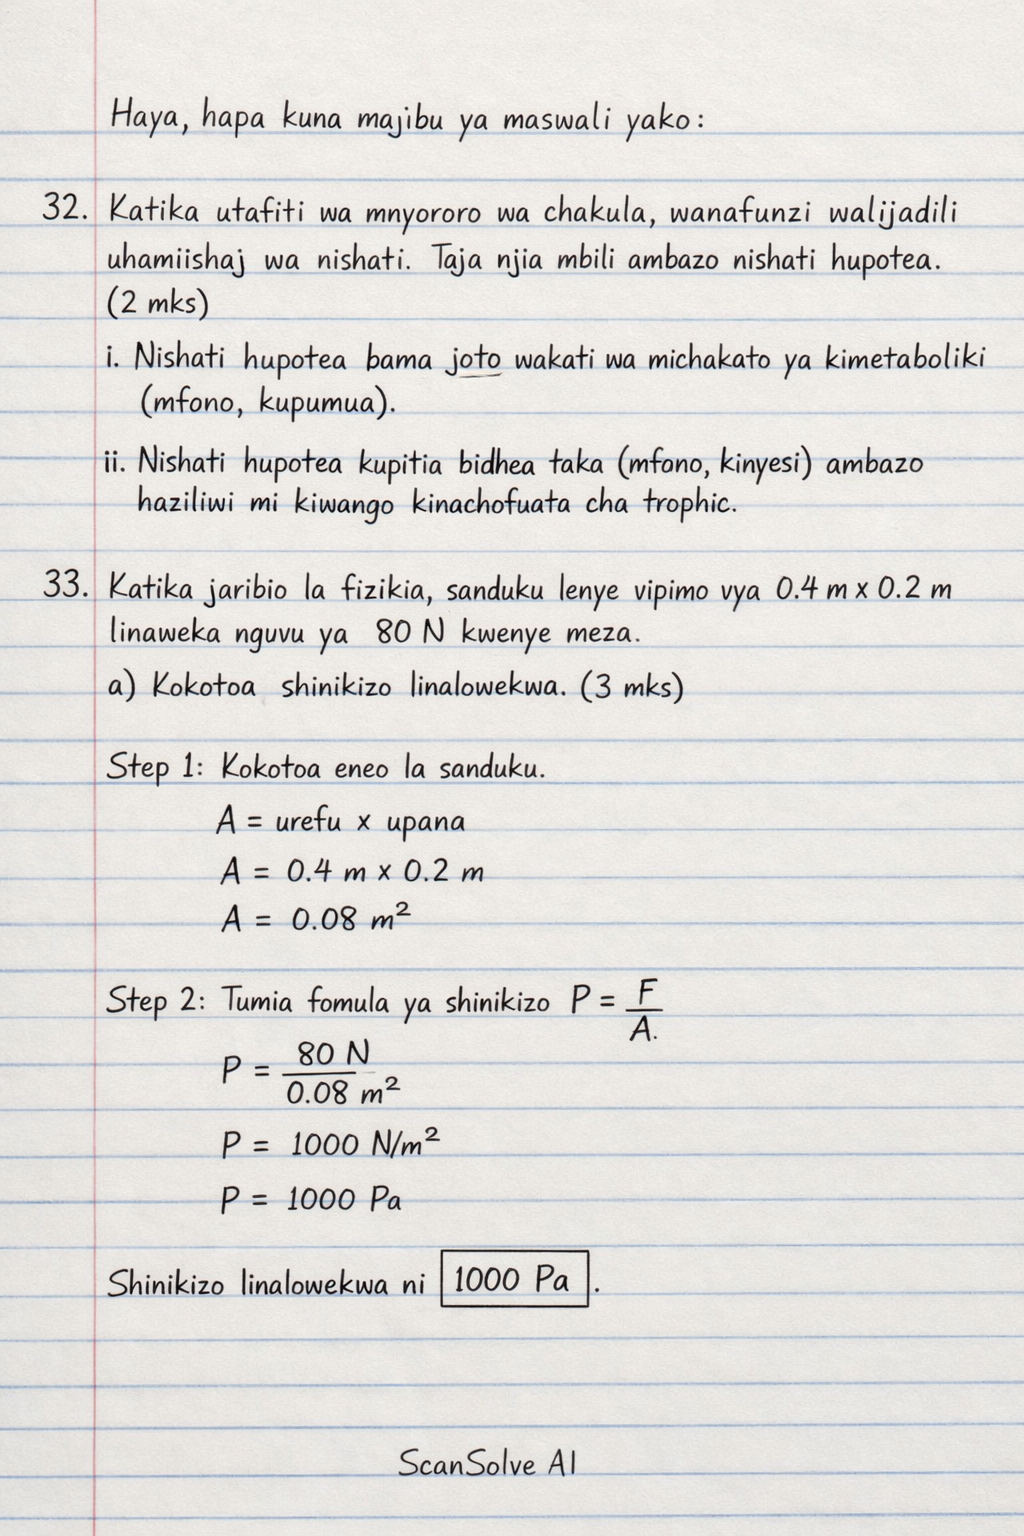 Haya, hapa kuna majibu ya maswali yako:
32. Katika utafiti wa mnyororo wa chakula, wanafunzi walijadili
uhamiishaj wa nishati. Taja njia mbili ambazo nishati hupotea.
(2 mks)
i. Nishati hupotea bama joto wakati wa michakato ya kimetaboliki
(mfono, kupumua).
ii. Nishati hupotea kupitia bidhea taka (mfono, kinyesi) ambazo
haziliwi mi kiwango kinachofuata cha trophic.
33. Katika jaribio la fizikia, sanduku lenye vipimo vya 0.4 m x 0.2 m
linaweka nguvu ya 80 N kwenye meza.
a) Kokotoa shinikizo linalowekwa. (3 mks)
Step 1: Kokotoa eneo la sanduku.
A = urefu x upana
A = 0.4 m x 0.2 m
A = 0.08 m²
Step 2: Tumia fomula ya shinikizo P = F/A.
P = 80 N / 0.08 m²
P = 1000 N/m²
P = 1000 Pa
Shinikizo linalowekwa ni 1000 Pa.
ScanSolve AI